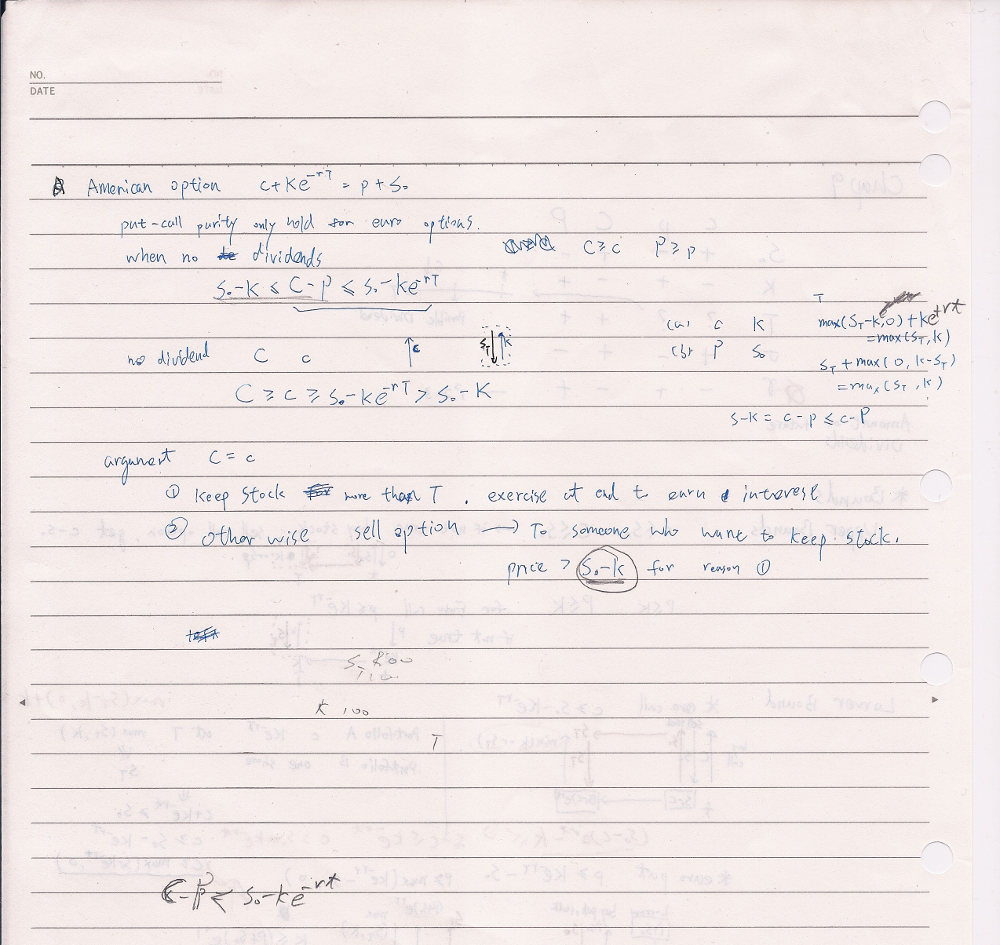 NO.
DATE
American option c+Ke^-rT = p+S₀
put-call purity only hold for euro options.
when no dividends C ≥ c P ≥ p
S₀-K ≤ C-P ≤ S₀-Ke^-rT
T
(a) c K max(S_T-K,0)+Ke^+rt
=max(S_T,K)
no dividend C c c S_T K (b) P S₀
S_T+max(0,K-S_T)
=max(S_T,K)
C ≥ c ≥ S₀-Ke^-rT > S₀-K
S-K = c-p ≤ C-P
argument C = c
① keep stock more than T . exercise at end to earn interest
② other wise sell option → To someone who want to keep stock.
price > S₀-K for reason ①
K 100
T
C-P ≤ S₀-Ke^-rt